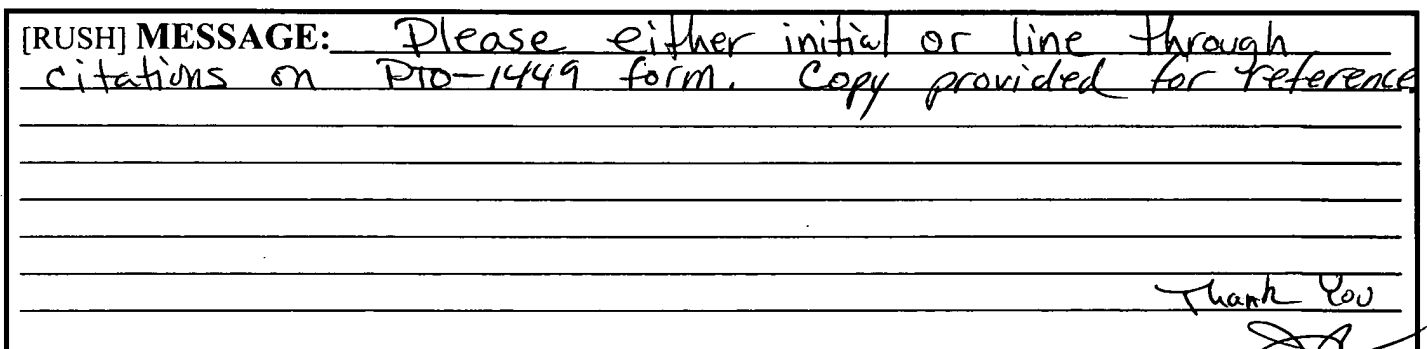 [RUSH] MESSAGE: Please either initial or line through
citations on PTO-1449 form. Copy provided for reference
Thank You